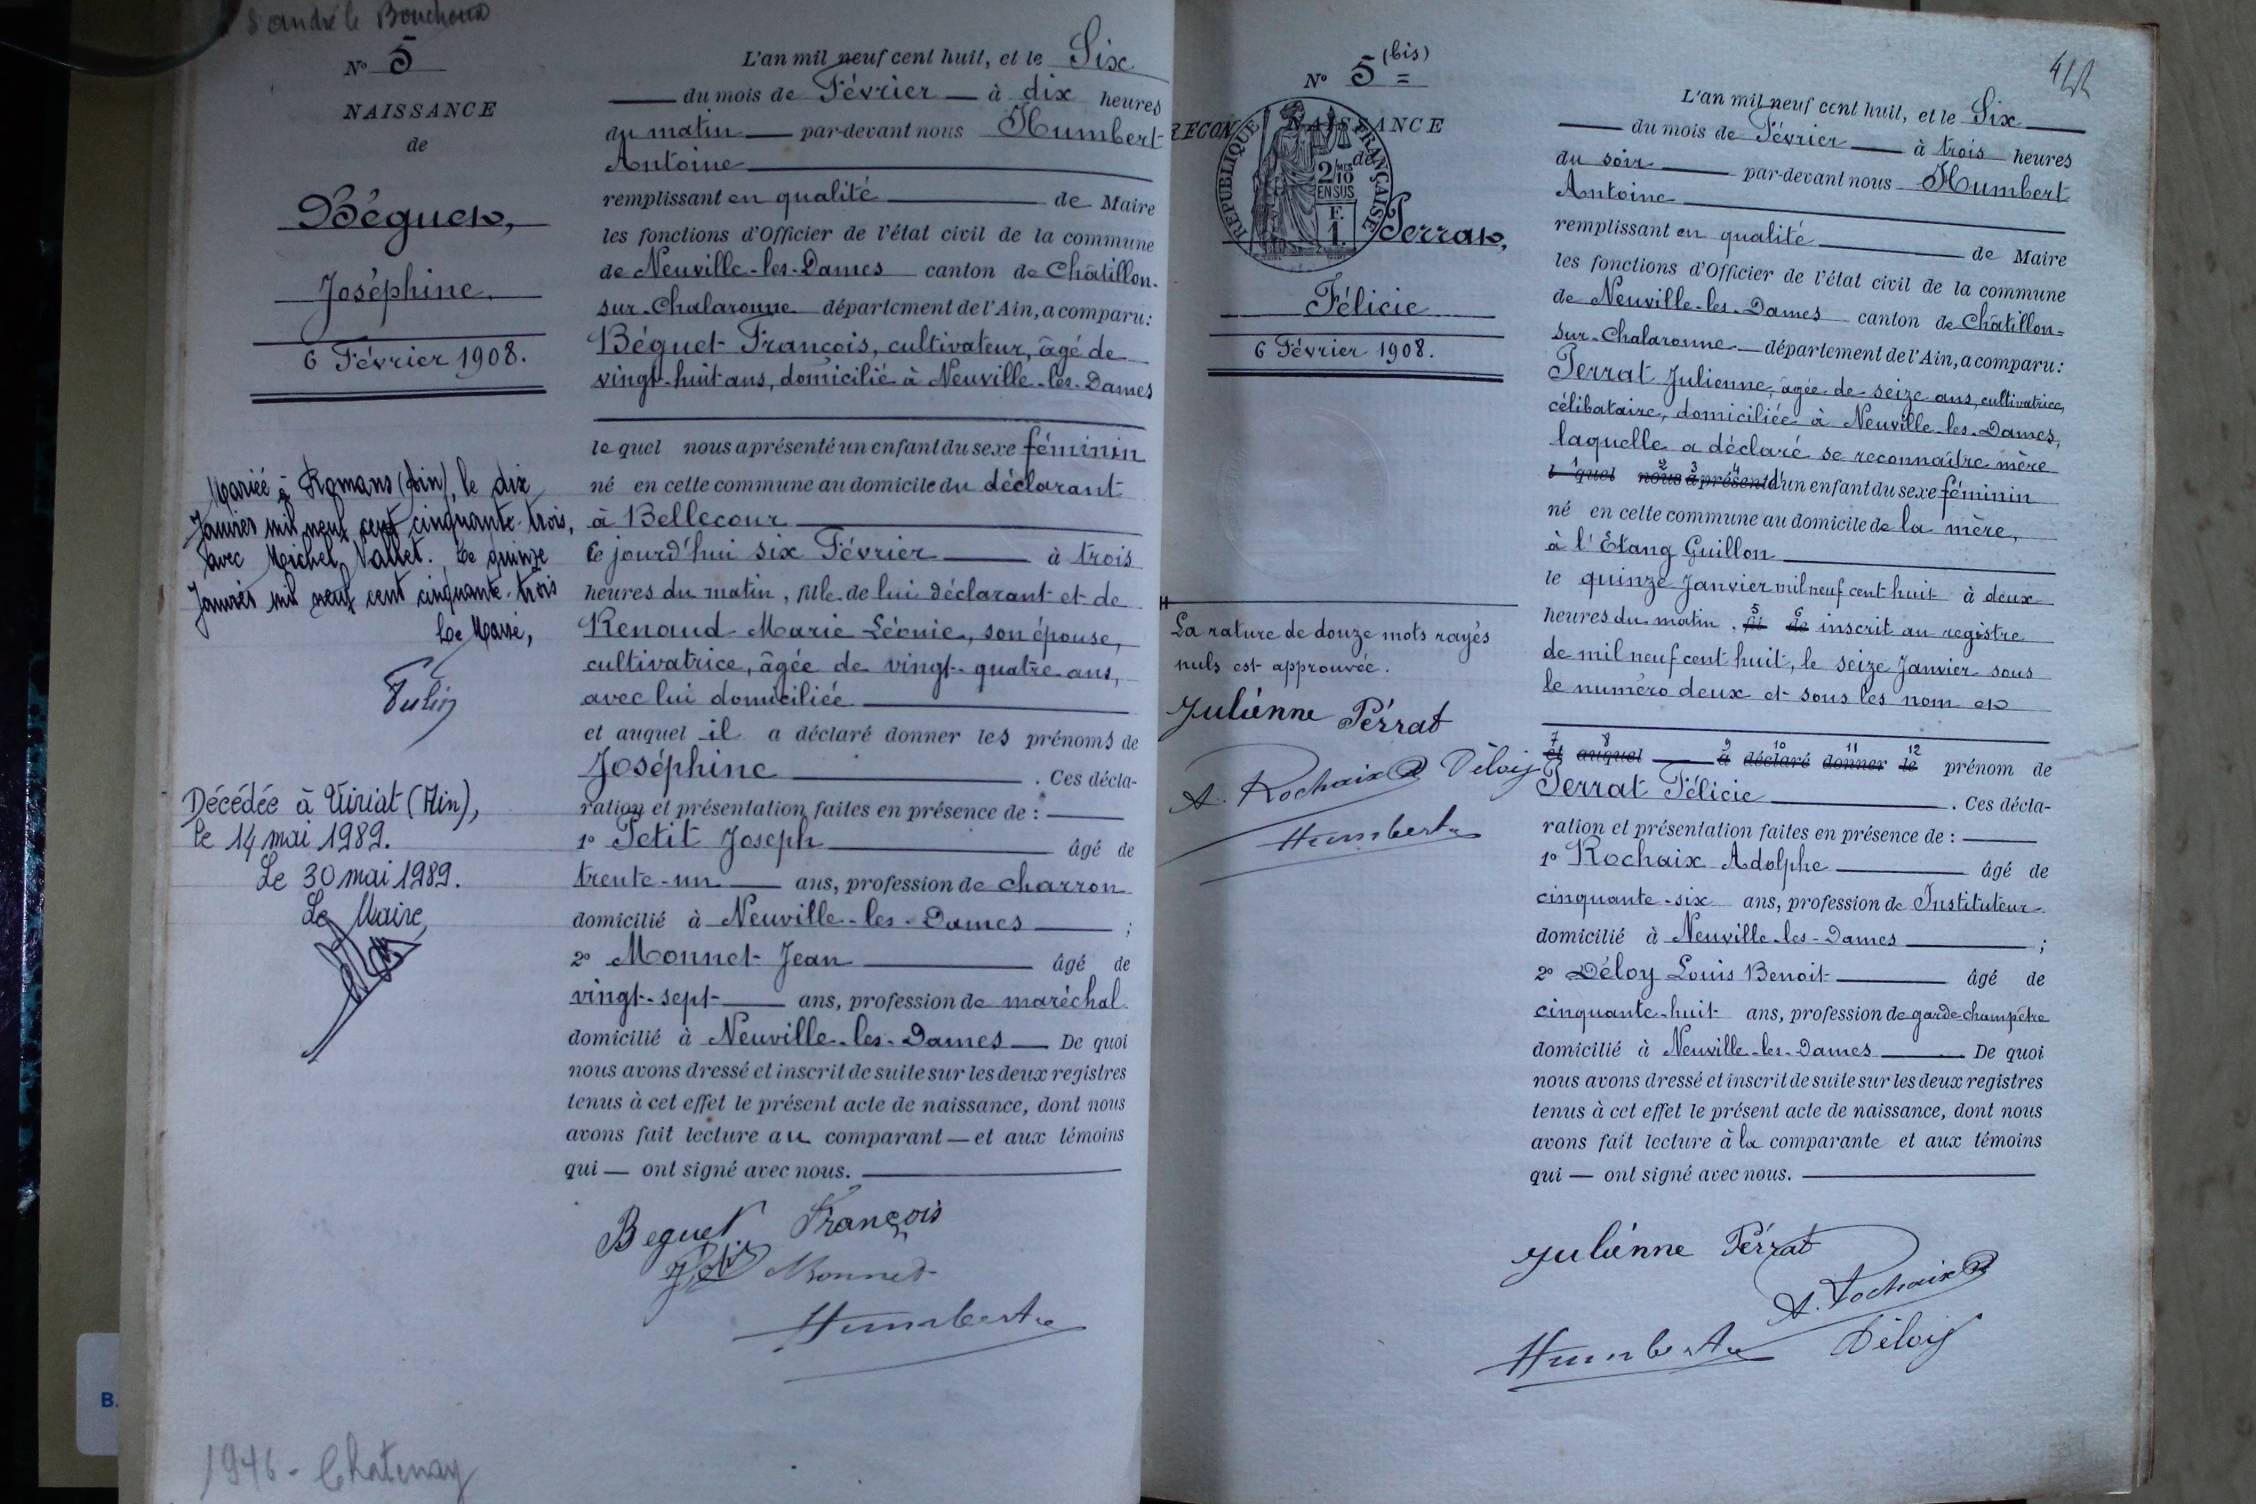 S^t andré le Bouchoux
N° 5
NAISSANCE
de
Béguet,
Joséphine.
6 Février 1908.
Mariée à Romans (Ain), le dix
Janvier mil neuf cent cinquante-trois,
avec Michel Vallet. Le quinze
Janvier mil neuf cent cinquante-trois
Le Maire,
Décédée à Viriat (Ain),
le 14 mai 1989.
Le 30 mai 1989.
Le Maire,
1946 - Chatenay
L'an mil neuf cent huit, et le Six
du mois de Février à dix heures
du matin par-devant nous Humbert
Antoine
remplissant en qualité de Maire
les fonctions d'Officier de l'état civil de la commune
de Neuville-les-Dames canton de Châtillon-
sur-Chalaronne département de l'Ain, a comparu:
Béguet François, cultivateur, âgé de
vingt-huit ans, domicilié à Neuville-les-Dames
lequel nous a présenté un enfant du sexe féminin
né en cette commune au domicile du déclarant
à Bellecour
ce jourd'hui six Février à trois
heures du matin, fille de lui déclarant et de
Renaud Marie Léonie, son épouse,
cultivatrice, âgée de vingt-quatre ans,
avec lui domiciliée
et auquel il a déclaré donner les prénoms de
Joséphine. Ces décla-
ration et présentation faites en présence de :
1° Petit Joseph âgé de
trente-un ans, profession de charron
domicilié à Neuville-les-Dames ;
2° Monnet Jean âgé de
vingt-sept ans, profession de maréchal
domicilié à Neuville-les-Dames De quoi
nous avons dressé et inscrit de suite sur les deux registres
tenus à cet effet le présent acte de naissance, dont nous
avons fait lecture au comparant — et aux témoins
qui — ont signé avec nous.
Beguet François
Monnet
Humbert
N° 5 (bis)
RECON NAISSANCE
de
REPUBLIQUE FRANÇAISE
2/10
EN SUS
F.
1.
Perrat,
Félicie
6 Février 1908.
La rature de douze mots rayés
nuls est approuvée.
Juliénne Pérrat
A. Rochaix Déloy
Humbert
L'an mil neuf cent huit, et le Six
du mois de Février à trois heures
du soir par-devant nous Humbert
Antoine
remplissant en qualité de Maire
les fonctions d'Officier de l'état civil de la commune
de Neuville-les-Dames canton de Châtillon-
sur-Chalaronne département de l'Ain, a comparu:
Perrat Julienne, âgée de seize ans, cultivatrice,
célibataire, domiciliée à Neuville-les-Dames,
laquelle a déclaré se reconnaître mère
1 2 3 4
l quel nous a présenté d'un enfant du sexe féminin
né en cette commune au domicile de la mère,
à l'Étang Guillon
le quinze Janvier mil neuf cent huit à deux
5 6
heures du matin, fil de inscrit au registre
de mil neuf cent huit, le seize Janvier sous
le numéro deux et sous les nom et
7 8 9 10 11 12
et auquel a déclaré donner le prénom de
Perrat Félicie. Ces décla-
ration et présentation faites en présence de :
1° Rochaix Adolphe âgé de
cinquante-six ans, profession de Instituteur
domicilié à Neuville-les-Dames ;
2° Déloy Louis Benoit âgé de
cinquante-huit ans, profession de garde champêtre
domicilié à Neuville-les-Dames De quoi
nous avons dressé et inscrit de suite sur les deux registres
tenus à cet effet le présent acte de naissance, dont nous
avons fait lecture à la comparante et aux témoins
qui — ont signé avec nous.
Juliénne Pérrat
A. Rochaix
Humbert Déloy
B.